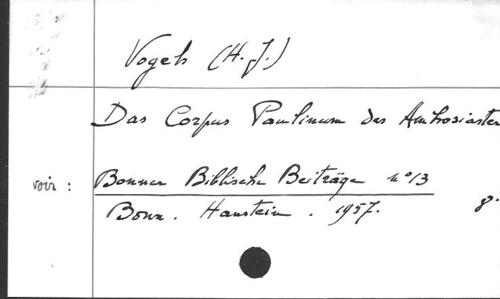 Vogels (H. J.)
Das Corpus Paulinum des Ambrosiaster
voir : Bonner Biblische Beiträge n° 13
Bonn. Hanstein. 1957. 8°